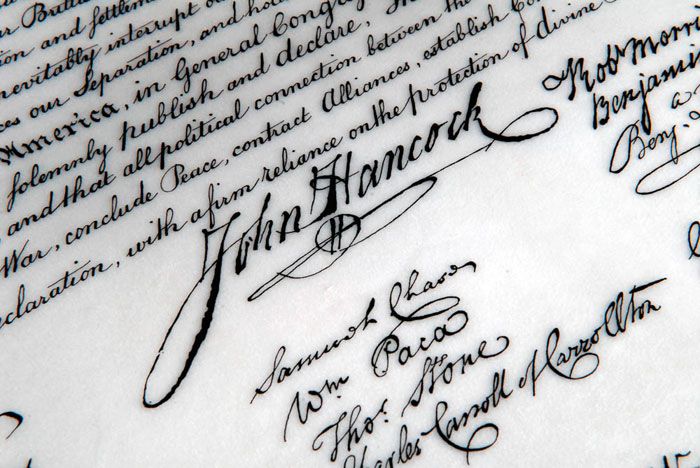 tion and settlem
nevitably interrupt ou
ces our Separation, and ho
America, in General Congr
solemnly publish and declare, Th
and that all political connection between the
War, conclude Peace, contract Alliances, establish Co
claration, with a firm reliance on the protection of divine
John Hancock
Samuel Chase
Wm Paca
Thos Stone
Charles Carroll of Carrollton
Rob Morri
Benjamin
Benj